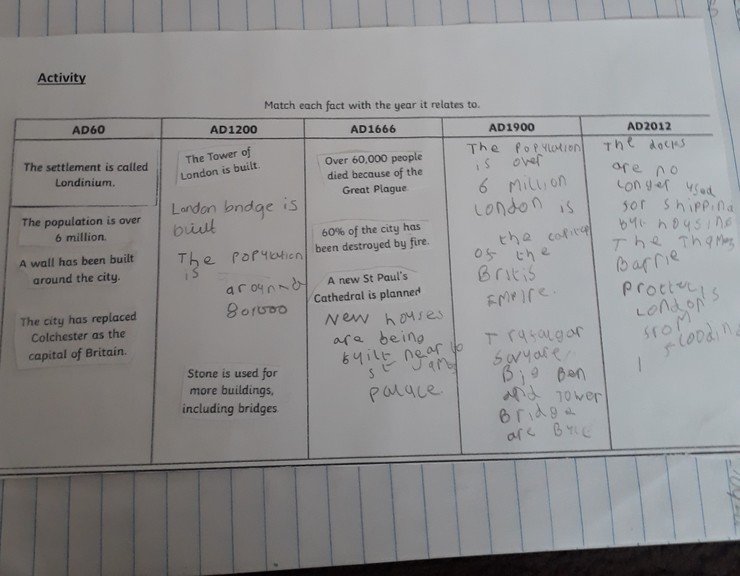 Activity
Match each fact with the year it relates to.
AD60
AD1200
AD1666
AD1900
AD2012
The settlement is called
Londinium.
The population is over
6 million.
A wall has been built
around the city.
The city has replaced
Colchester as the
capital of Britain.
The Tower of
London is built.
London bridge is
built
The population
is
around
801000
Stone is used for
more buildings,
including bridges.
Over 60,000 people
died because of the
Great Plague.
60% of the city has
been destroyed by fire.
A new St Paul's
Cathedral is planned
New houses
are being
built near to
st
palace.
The Population
is over
6 Million
London is
the capital
of the
Britis
Empire.
Trafalgar
Big Ben
and Tower
Bridge
are
The docks
are no
longer used
for shipping
but housing
The Thames
Barrie
London
from
flooding